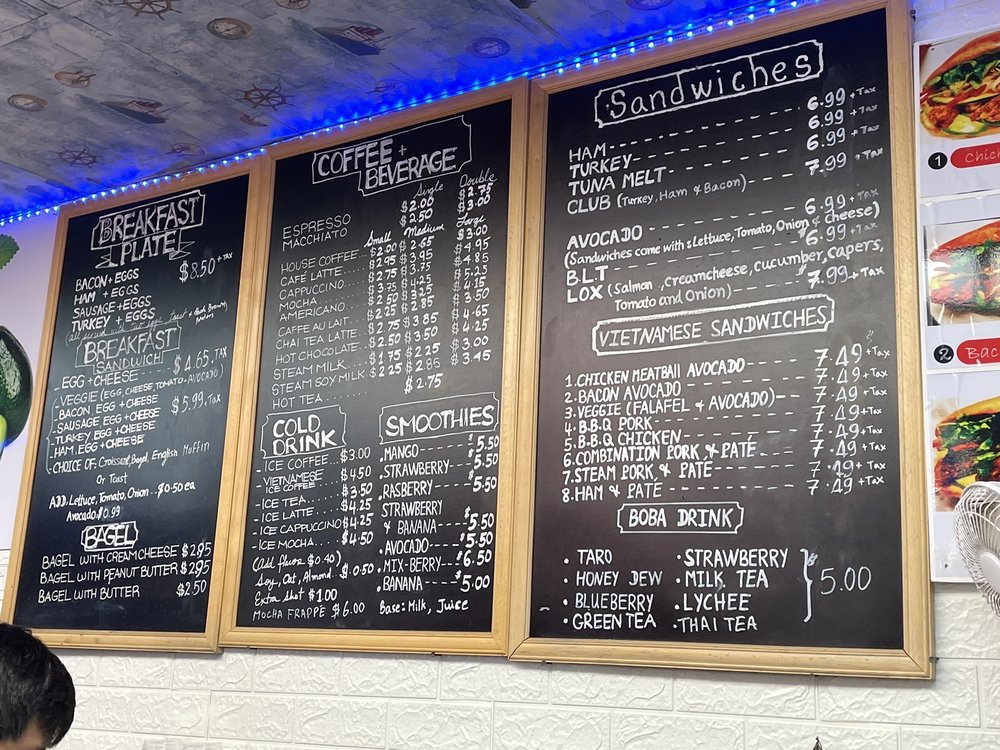 BREAKFAST
PLATE
BACON + EGGS $8.50 + TAX
HAM + EGGS
SAUSAGE + EGGS
TURKEY + EGGS
BREAKFAST
SANDWICH
EGG + CHEESE $4.65, TAX
VEGGIE (EGG, CHEESE, TOMATO + AVOCADO)
BACON EGG + CHEESE $5.99, TAX
SAUSAGE EGG + CHEESE
TURKEY EGG + CHEESE
HAM, EGG + CHEESE
CHOICE OF: Croissant, Bagel, English Muffin
Or Toast
ADD, Lettuce, Tomato, Onion.. $0.50 ea
Avocado $0.99
BAGEL
BAGEL WITH CREAM CHEESE $2.95
BAGEL WITH PEANUT BUTTER $2.95
BAGEL WITH BUTTER $2.50
COFFEE +
BEVERAGE
Single Double
ESPRESSO $2.00 $2.75
MACCHIATO $2.50 $3.00
Small Medium Large
HOUSE COFFEE.. $2.00 $2.65 $3.00
CAFE LATTE $2.95 $3.95 $4.95
CAPPUCCINO $2.95 $3.75 $4.85
MOCHA $3.75 $4.25 $5.25
AMERICANO $2.50 $3.25 $4.15
CAFFE AU LAIT $2.25 $2.85 $3.50
CHAI TEA LATTE $2.75 $3.85 $4.65
HOT CHOCOLATE $2.50 $3.50 $4.25
STEAM MILK $1.75 $2.25 $3.00
STEAM SOY MILK $2.25 $2.85 $3.45
HOT TEA $2.75
COLD
DRINK
ICE COFFEE... $3.00
VIETNAMESE
ICE COFFEE $4.50
ICE TEA $3.50
ICE LATTE $4.25
ICE CAPPUCCINO $4.25
ICE MOCHA $4.50
(Add flavor $0.40)
Soy, Oat, Almond. $0.50
Extra Shot $1.00
MOCHA FRAPPE $6.00
SMOOTHIES
MANGO $5.50
STRAWBERRY $5.50
RASBERRY $5.50
STRAWBERRY
& BANANA $5.50
AVOCADO $5.50
MIX-BERRY $6.50
BANANA $5.00
Base: Milk, Juice
Sandwiches
HAM 6.99 + Tax
TURKEY 6.99 + Tax
TUNA MELT 6.99 + Tax
CLUB (Turkey, Ham & Bacon) 7.99 + Tax
AVOCADO 6.99 + Tax
(Sandwiches come with: Lettuce, Tomato, Onion & cheese)
B.L.T $6.99 + Tax
LOX (Salmon, creamcheese, cucumber, capers,
Tomato and Onion) $7.99 + Tax
VIETNAMESE SANDWICHES
1. CHICKEN MEATBALL AVOCADO 7.49 + Tax
2. BACON AVOCADO 7.49 + Tax
3. VEGGIE (FALAFEL & AVOCADO) 7.49 + Tax
4. B.B.Q PORK 7.49 + Tax
5. B.B.Q. CHICKEN 7.49 + Tax
6. COMBINATION PORK & PATÉ 7.49 + Tax
7. STEAM PORK, & PATE 7.49 + Tax
8. HAM & PATE 7.49 + Tax
BOBA DRINK
• TARO • STRAWBERRY
• HONEY DEW • MILK TEA 5.00
• BLUEBERRY • LYCHEE
• GREEN TEA • THAI TEA
1 Chic
2 Bac